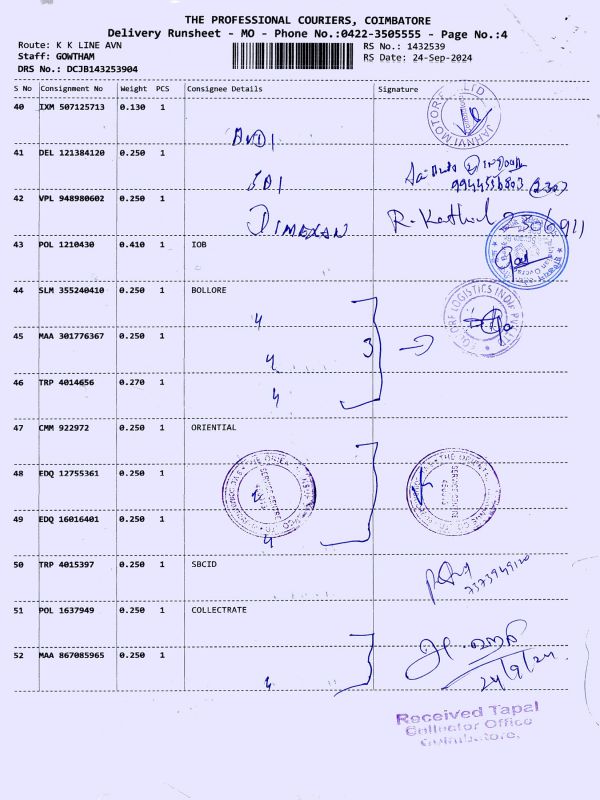 THE PROFESSIONAL COURIERS, COIMBATORE
Delivery Runsheet - MO - Phone No.:0422-3505555 - Page No.:4
Route: K K LINE AVN
RS No.: 1432539
Staff: GOWTHAM
RS Date: 24-Sep-2024
DRS No.: DCJB143253904
S No Consignment No Weight PCS Consignee Details Signature
40 IXM 507125713 0.130 1
JAHNVI MOTOR LTD
41 DEL 121384120 0.250 1
42 VPL 948980602 0.250 1
43 POL 1210430 0.410 1 IOB
44 SLM 355240410 0.250 1 BOLLORE
LOGISTICS INDIA PVT. LTD
45 MAA 301776367 0.250 1
3
46 TRP 4014656 0.270 1
47 CMM 922972 0.250 1 ORIENTIAL
48 EDQ 12755361 0.250 1
49 EDQ 16016401 0.250 1
50 TRP 4015397 0.250 1 SBCID
7373949120
51 POL 1637949 0.250 1 COLLECTRATE
52 MAA 867085965 0.250 1
24/9/24
Received Tapal
Collector Office
Coimbatore.